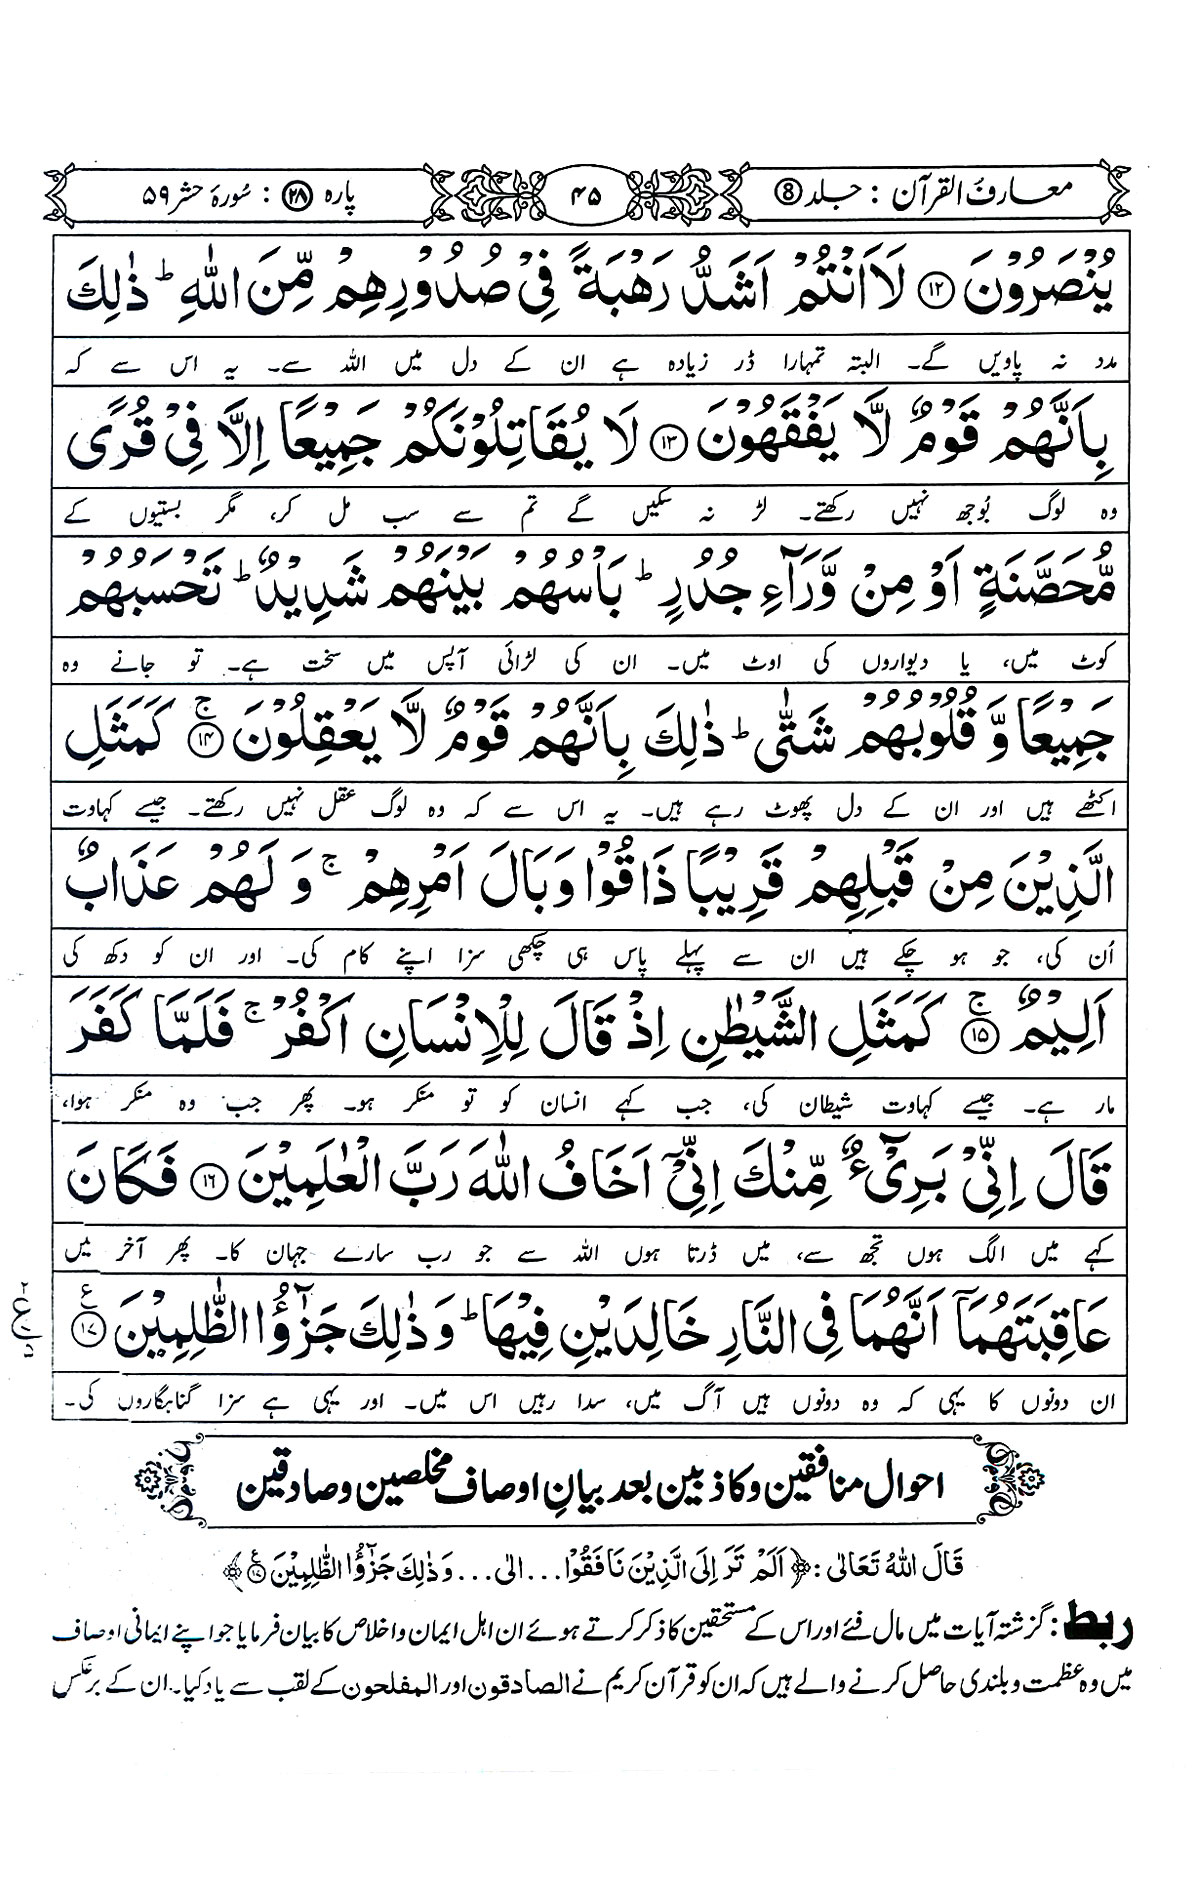 معارفُ القرآن : جلد ⑧
۴۵
پارہ ㉘ : سُورۂ حشر ۵۹
يُنْصَرُوْنَ ﴿۱۲﴾ لَاَانْتُمْ اَشَدُّ رَهْبَةً فِيْ صُدُوْرِهِمْ مِّنَ اللّٰهِ ؕ ذٰلِكَ
مدد نہ پاویں گے۔ البتہ تمہارا ڈر زیادہ ہے ان کے دل میں اللہ سے۔ یہ اس سے کہ
بِاَنَّهُمْ قَوْمٌ لَّا يَفْقَهُوْنَ ﴿۱۳﴾ لَا يُقَاتِلُوْنَكُمْ جَمِيْعًا اِلَّا فِيْ قُرًى
وہ لوگ بُوجھ نہیں رکھتے۔ لڑ نہ سکیں گے تم سے سب مل کر، مگر بستیوں کے
مُّحَصَّنَةٍ اَوْ مِنْ وَّرَآءِ جُدُرٍ ؕ بَاْسُهُمْ بَيْنَهُمْ شَدِيْدٌ ؕ تَحْسَبُهُمْ
کوٹ میں، یا دیواروں کی اوٹ میں۔ ان کی لڑائی آپس میں سخت ہے۔ تو جانے وہ
جَمِيْعًا وَّ قُلُوْبُهُمْ شَتّٰى ؕ ذٰلِكَ بِاَنَّهُمْ قَوْمٌ لَّا يَعْقِلُوْنَ ﴿۱۴﴾ۚ كَمَثَلِ
اکٹھے ہیں اور ان کے دل پھوٹ رہے ہیں۔ یہ اس سے کہ وہ لوگ عقل نہیں رکھتے۔ جیسے کہاوت
الَّذِيْنَ مِنْ قَبْلِهِمْ قَرِيْبًا ذَاقُوْا وَبَالَ اَمْرِهِمْ ۚ وَ لَهُمْ عَذَابٌ
اُن کی، جو ہو چکے ہیں ان سے پہلے پاس ہی چکھی سزا اپنے کام کی۔ اور ان کو دکھ کی
اَلِيْمٌ ﴿۱۵﴾ۚ كَمَثَلِ الشَّيْطٰنِ اِذْ قَالَ لِلْاِنْسَانِ اكْفُرْ ۚ فَلَمَّا كَفَرَ
مار ہے۔ جیسے کہاوت شیطان کی، جب کہے انسان کو تو منکر ہو۔ پھر جب وہ منکر ہوا،
قَالَ اِنِّيْ بَرِيْٓءٌ مِّنْكَ اِنِّيْٓ اَخَافُ اللّٰهَ رَبَّ الْعٰلَمِيْنَ ﴿۱۶﴾ فَكَانَ
کہے میں الگ ہوں تجھ سے، میں ڈرتا ہوں اللہ سے جو رب سارے جہان کا۔ پھر آخر میں
عَاقِبَتَهُمَآ اَنَّهُمَا فِي النَّارِ خَالِدَيْنِ فِيْهَا ؕ وَ ذٰلِكَ جَزٰٓؤُا الظّٰلِمِيْنَ ﴿۱۷﴾ۧ
ان دونوں کا یہی کہ وہ دونوں ہیں آگ میں، سدا رہیں اس میں۔ اور یہی ہے سزا گناہگاروں کی۔
احوال منافقین و کاذبین بعد بیانِ اوصاف مخلصین و صادقین
قَالَ اللّٰهُ تَعَالٰى : ﴿اَلَمْ تَرَ اِلَى الَّذِيْنَ نَافَقُوْا... الٰى... وَ ذٰلِكَ جَزٰٓؤُا الظّٰلِمِيْنَ ۧ۱۷﴾
ربط : گزشتہ آیات میں مال فئے اور اس کے مستحقین کا ذکر کرتے ہوئے ان اہل ایمان و اخلاص کا بیان فرمایا جو اپنے ایمانی اوصاف
میں وہ عظمت و بلندی حاصل کرنے والے ہیں کہ ان کو قرآن کریم نے الصادقون اور المفلحون کے لقب سے یاد کیا۔ ان کے برعکس